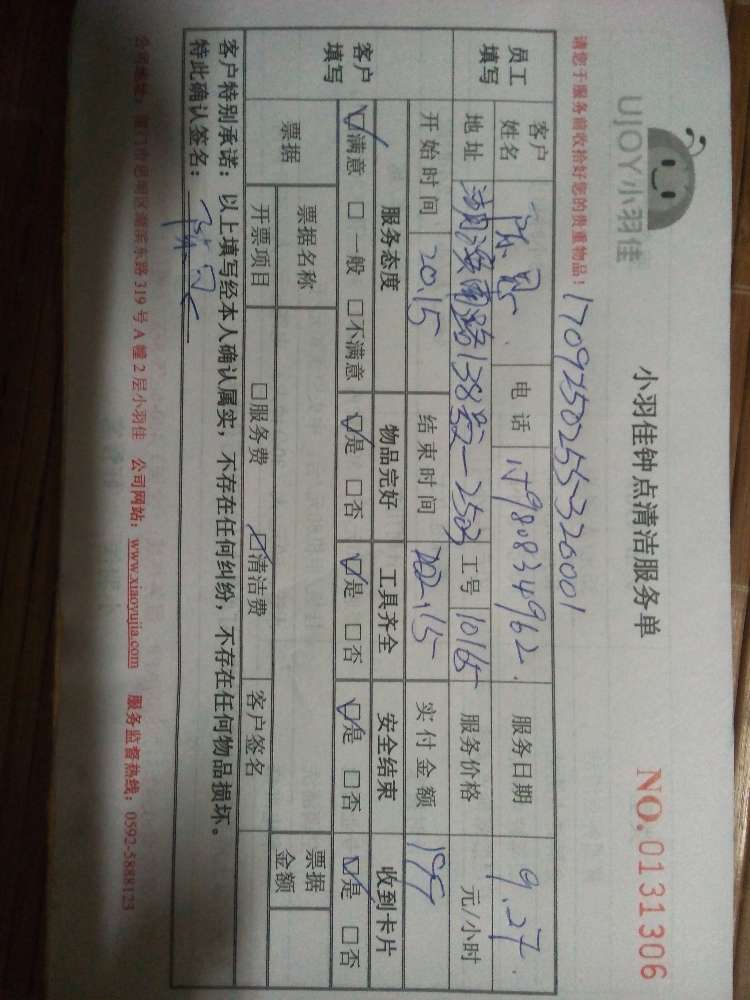 UJOY小羽佳
小羽佳钟点清洁服务单
NO. 0131306
请您于服务前收拾好您的贵重物品!
1709250255320001
员工填写
客户姓名 电话 服务日期 9.27.
地址 工号 10165 服务价格 元/小时
开始时间 20.15 结束时间 实付金额
客户填写
服务态度 物品完好 工具齐全 安全结束 收到卡片
☑满意 □一般 □不满意 ☑是 □否 ☑是 □否 ☑是 □否 ☑是 □否
票据 票据名称 票据金额
开票项目 □服务费 ☑清洁费 客户签名
客户特别承诺:以上填写经本人确认属实,不存在任何纠纷,不存在任何物品损坏。
特此确认签名:
公司地址:厦门市思明区湖滨东路319号A幢2层小羽佳 公司网站:www.xiaoyujia.com 服务监督热线:0592-5888123